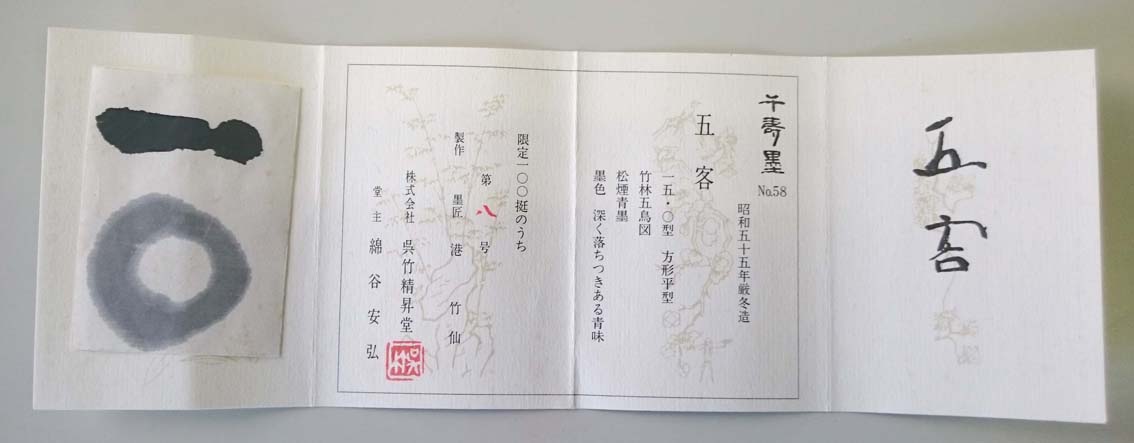 五客
千寿墨
No.58
昭和五十五年厳冬造
五客
一五・〇型 方形平型
竹林五鳥図
松煙青墨
墨色 深く落ちつきある青味
限定一〇〇挺のうち
第八号
製作 墨匠 港竹仙
株式会社 呉竹精昇堂
堂主 綿谷安弘